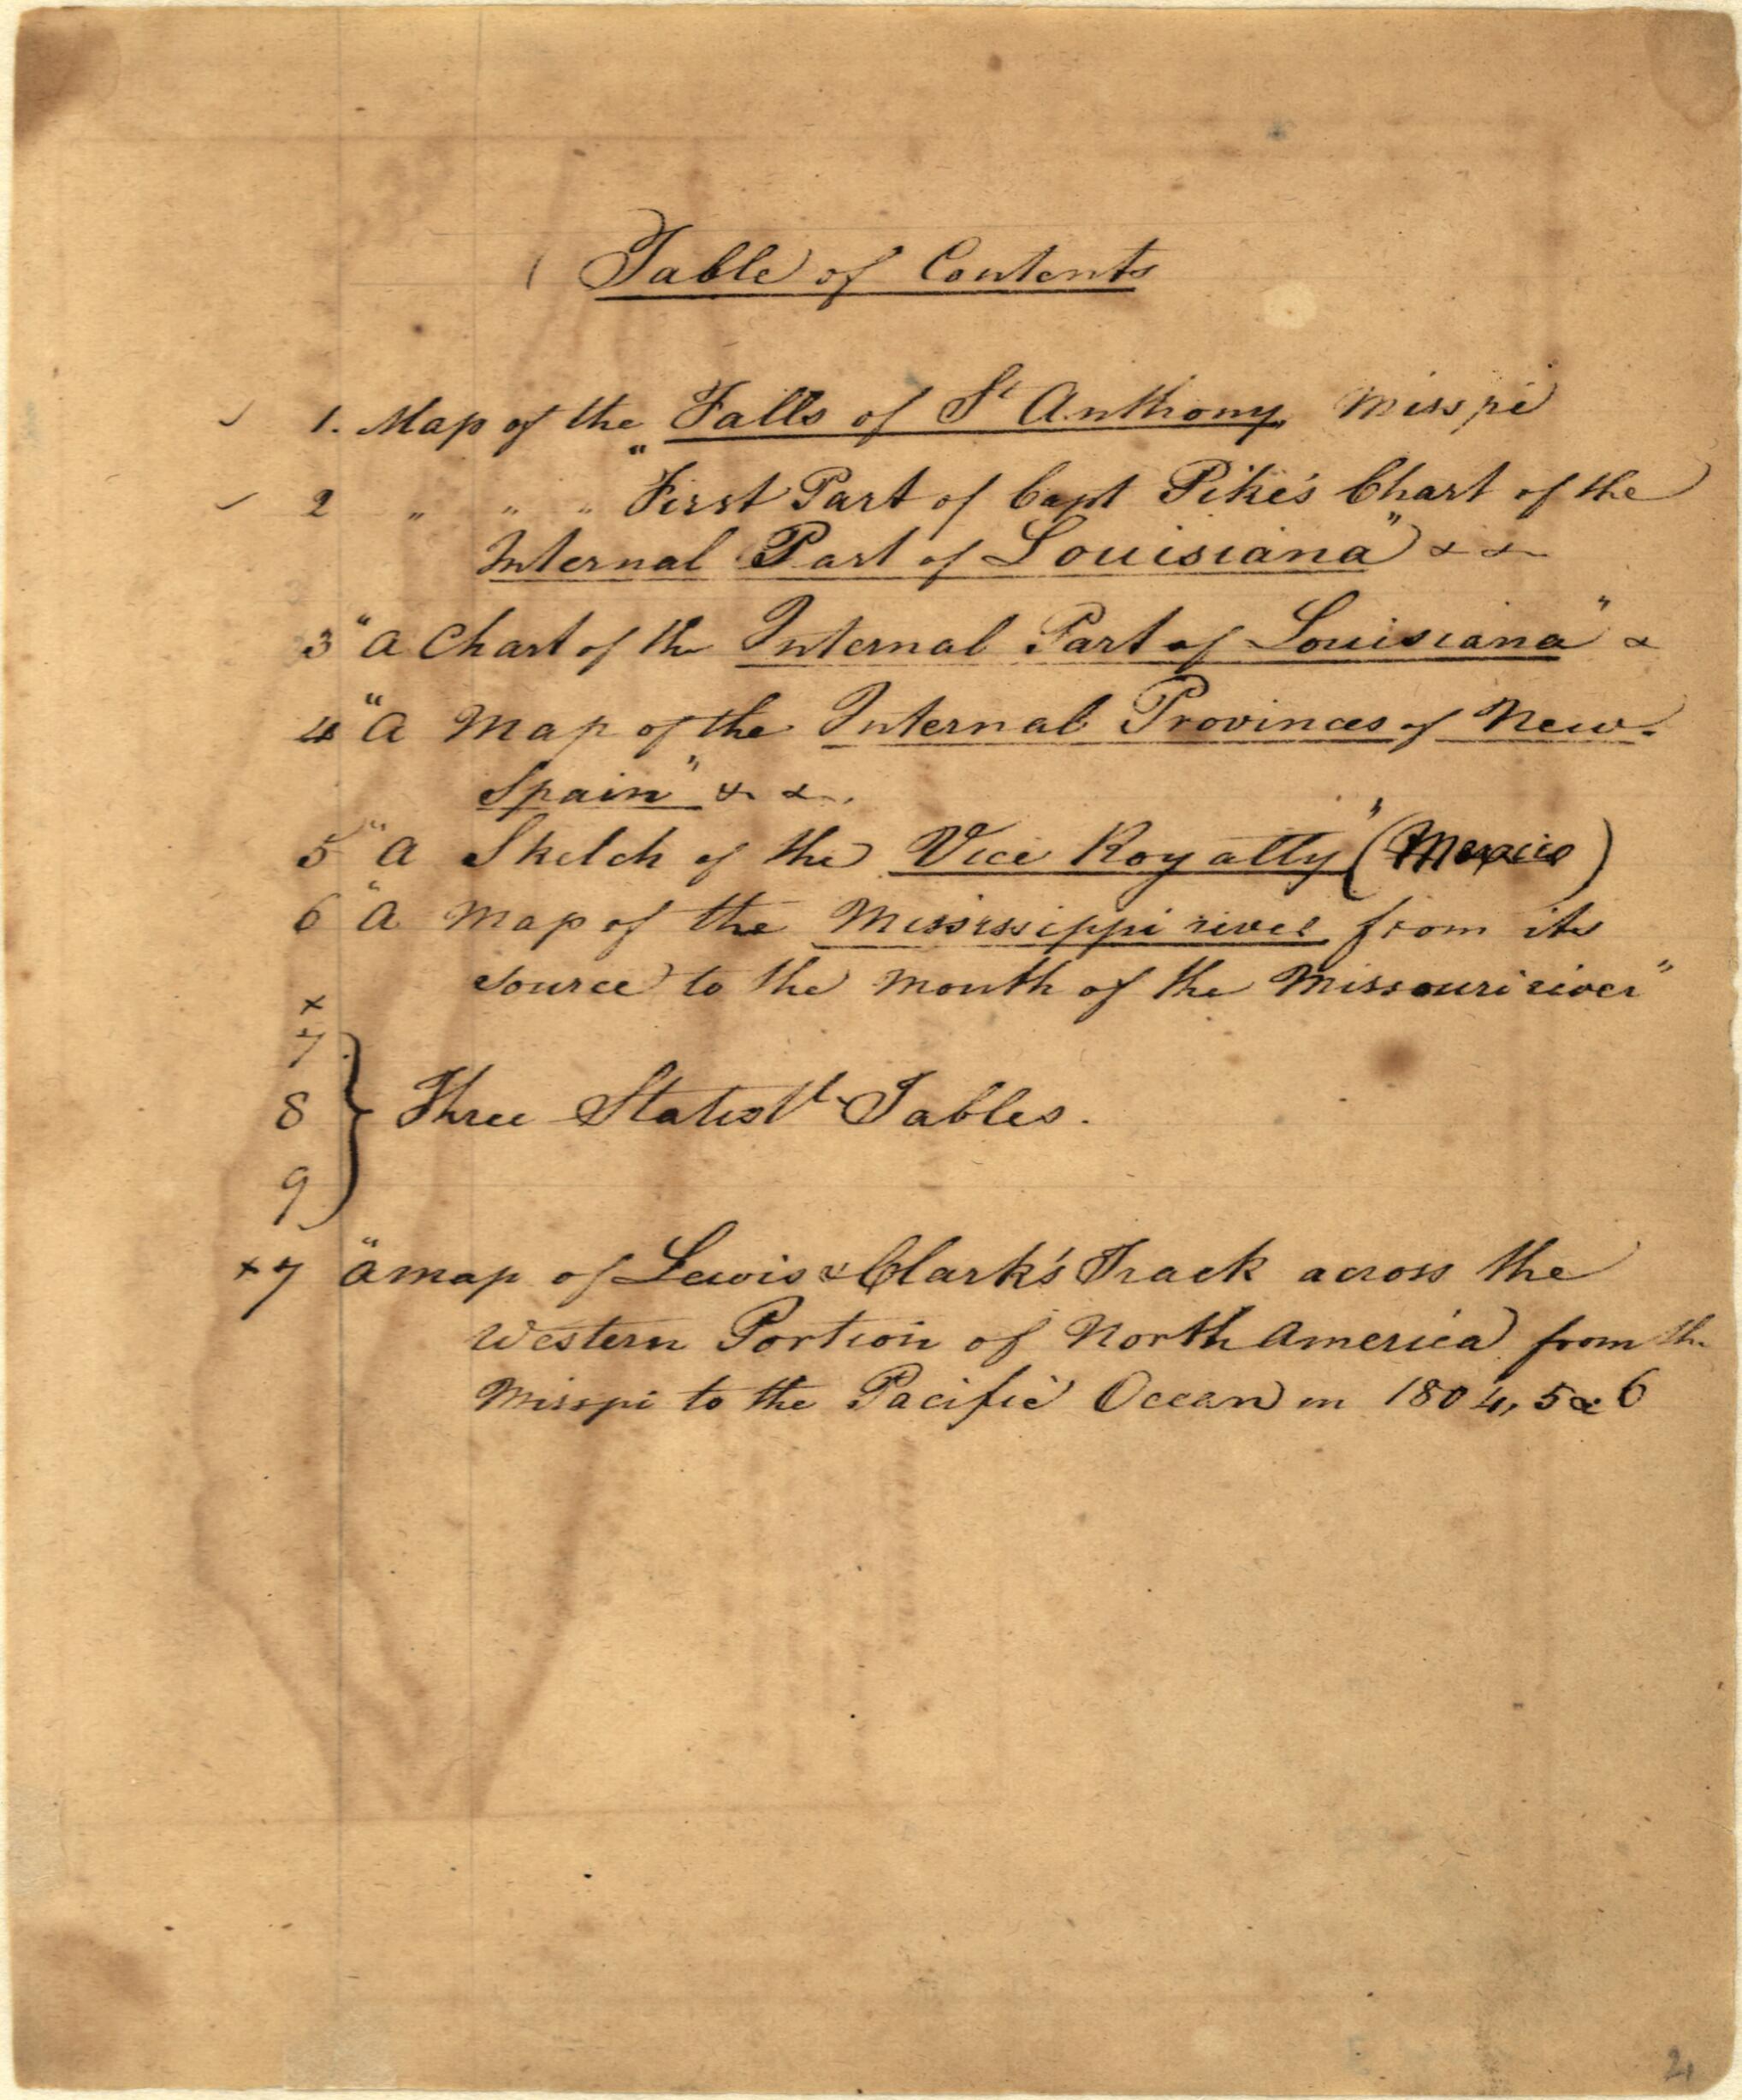 Table of Contents
✓ 1. Map of the Falls of St Anthony Misspi
✓ 2 " " " "First Part of Capt Pike's Chart of the
Internal Part of Louisiana" & &
3 "A Chart of the Internal Part of Louisiana" &
4 "A Map of the Internal Provinces of New
Spain" & &.
5 "A Sketch of the Vice Royalty" (Mexico)
6 "A Map of the Mississippi river from its
source to the Mouth of the Missouri river"
x
7
8 } Three Statistl. Tables.
9
x 7 "A map of Lewis & Clark's Track across the
Western Portion of North America from the
Misspi to the Pacific Ocean in 1804, 5 & 6
2,